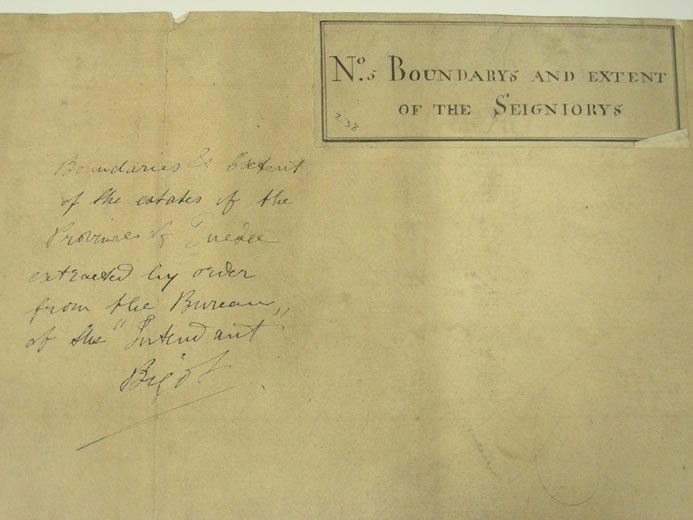 No. 5 BOUNDARYS AND EXTENT
OF THE SEIGNIORYS
238
Boundaries & Extent
of the estates of the
Province of Quebec
extracted by order
from the Bureau,,
of the "Intendant
Bigot